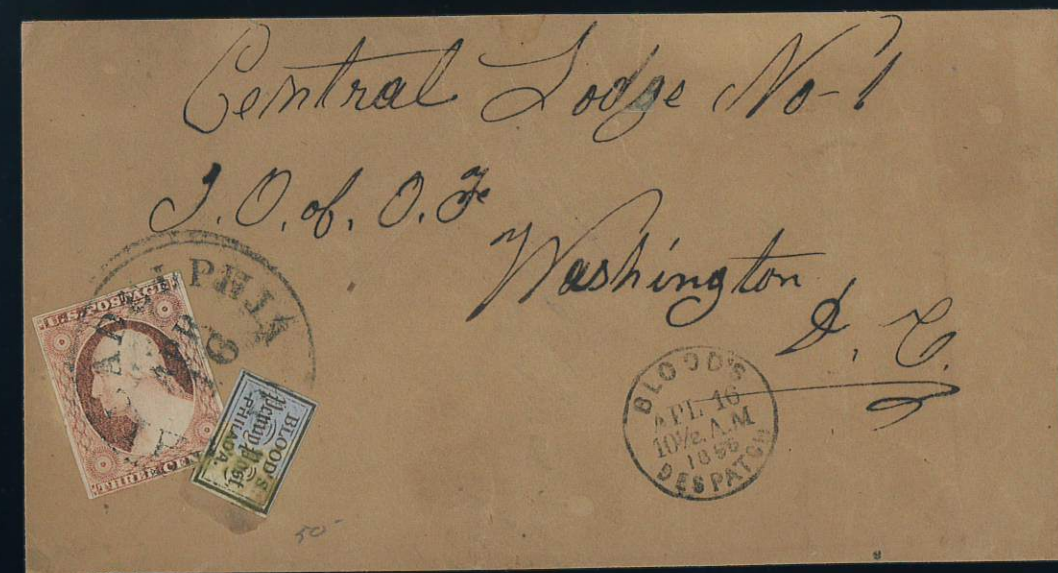 Central Lodge No-1
I. O. of. O. F
Washington
D. C.
PHIA
APR
16
U.S. POSTAGE
THREE CEN
BLOOD'S
Penny Post.
PHILADA.
BLOOD'S
APL 16
10½ A.M
1856
DESPATCH
50-